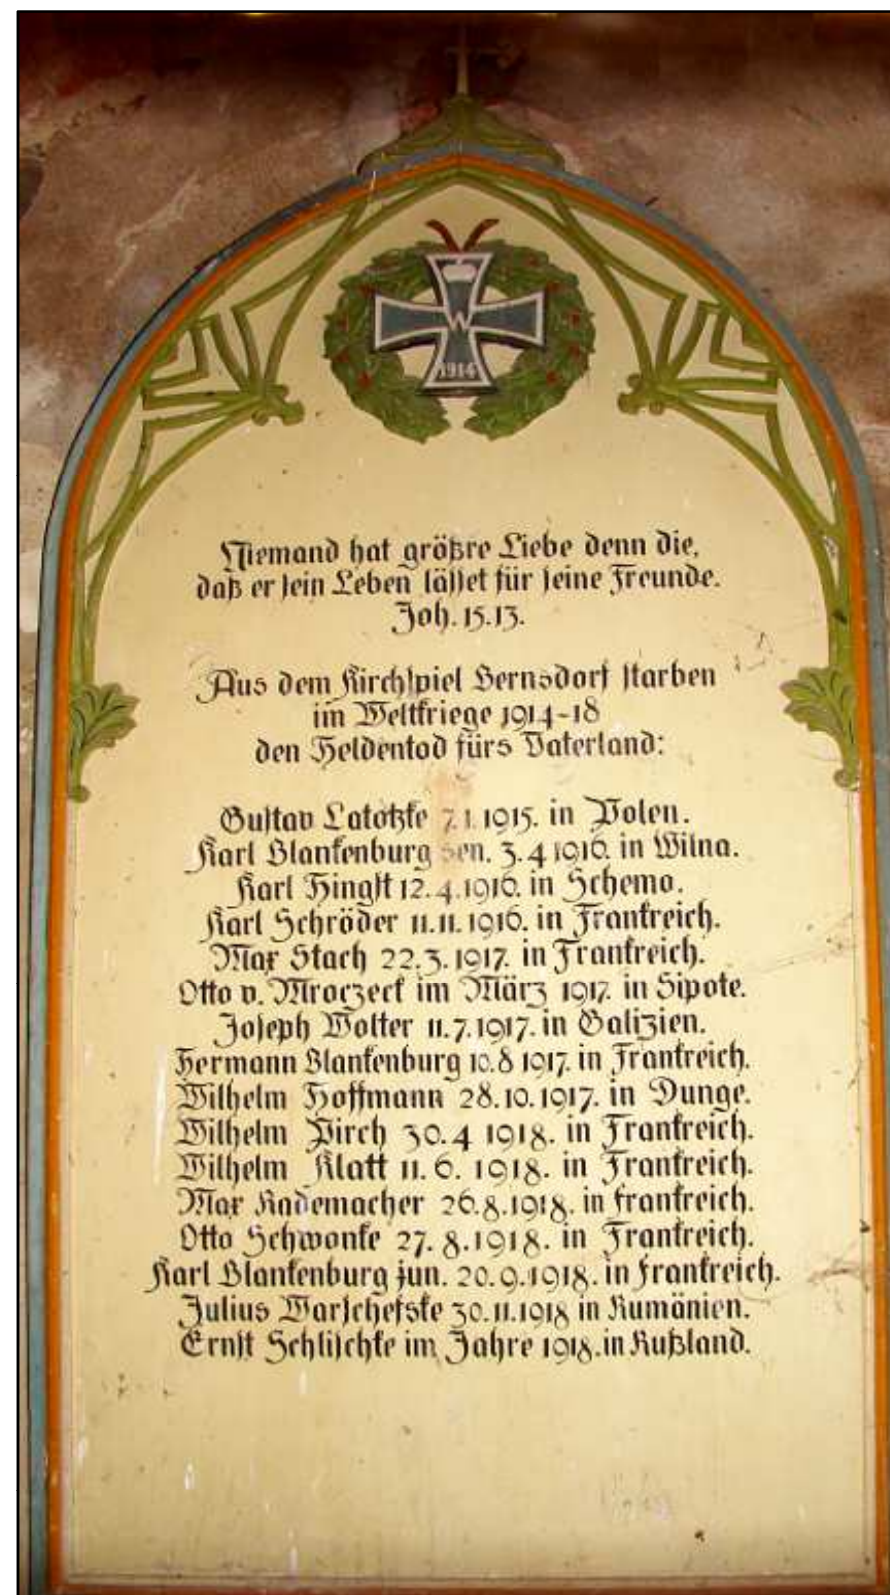 W
1914
Niemand hat größre Liebe denn die,
daß er sein Leben lässet für seine Freunde.
Joh. 15.13.
Aus dem Kirchspiel Bernsdorf starben
im Weltkriege 1914-18
den Heldentod fürs Vaterland:
Gustav Latotzke 7.1.1915. in Polen.
Karl Blankenburg sen. 3.4 1916. in Wilna.
Karl Hingst 12.4.1916. in Schemo.
Karl Schröder 11.11.1916. in Frankreich.
Max Stach 22.3.1917. in Frankreich.
Otto v. Mroczeck im März 1917. in Sipote.
Joseph Wolter 11.7.1917. in Galizien.
Hermann Blankenburg 10.8 1917. in Frankreich.
Wilhelm Hoffmann 28.10.1917. in Dunge.
Wilhelm Pirch 30.4 1918. in Frankreich.
Wilhelm Klatt 11.6.1918. in Frankreich.
Max Rademacher 26.8.1918. in Frankreich.
Otto Schwonke 27.8.1918. in Frankreich.
Karl Blankenburg jun. 20.9.1918. in Frankreich.
Julius Warschefske 30.11.1918 in Rumänien.
Ernst Schlischke im Jahre 1918. in Rußland.